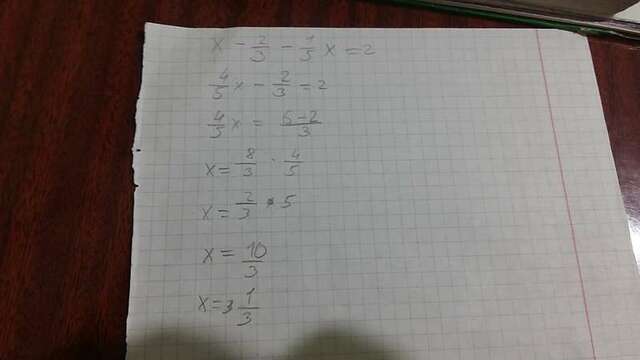 x - 2/3 - 1/5 x = 2
4/5 x - 2/3 = 2
4/5 x = 6-2/3
x = 8/3 · 4/5
x = 2/3 · 5
x = 10/3
x = 3 1/3